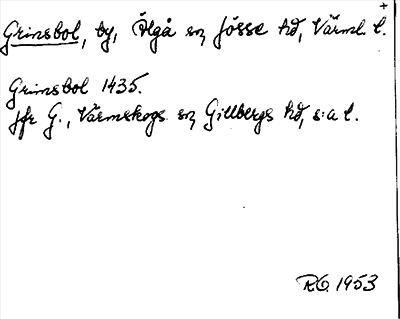 Grinsbol, by, Älgå sn, Jösse hd, Värml. l.
Grimsbol 1435.
jfr G., Värmskogs sn, Gillbergs hd, s:a l.
R.O. 1953